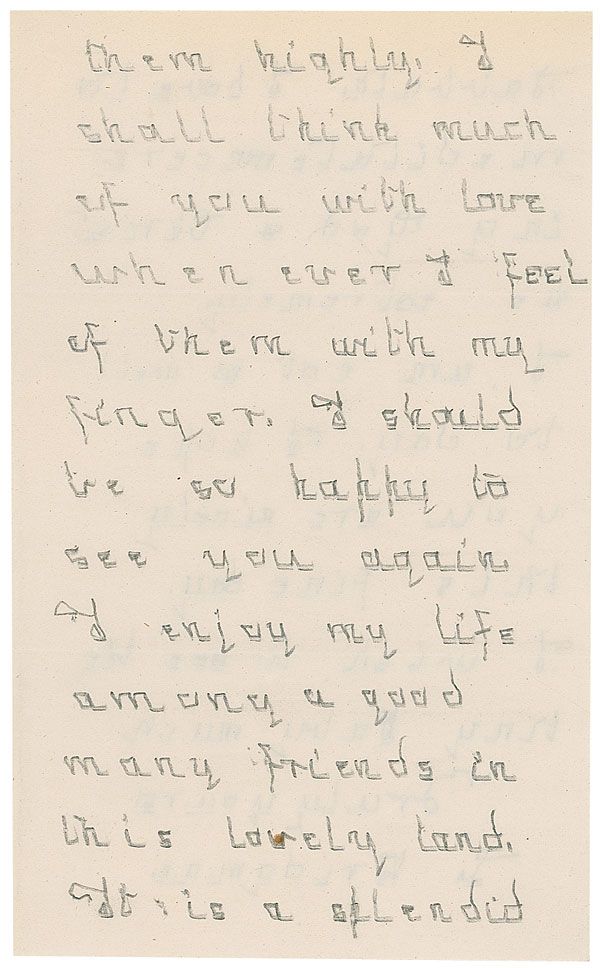 them highly. I
shall think much
of you with love
when ever I feel
of them with my
finger. I should
be so happy to
see you again.
I enjoy my life
among a good
many friends in
this lovely land.
It is a splendid